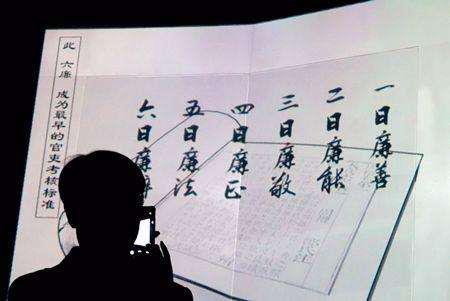 一曰廉善
二曰廉能
三曰廉敬
四曰廉正
五曰廉法
六曰廉辨
此 六廉 成为最早的官吏考核标准